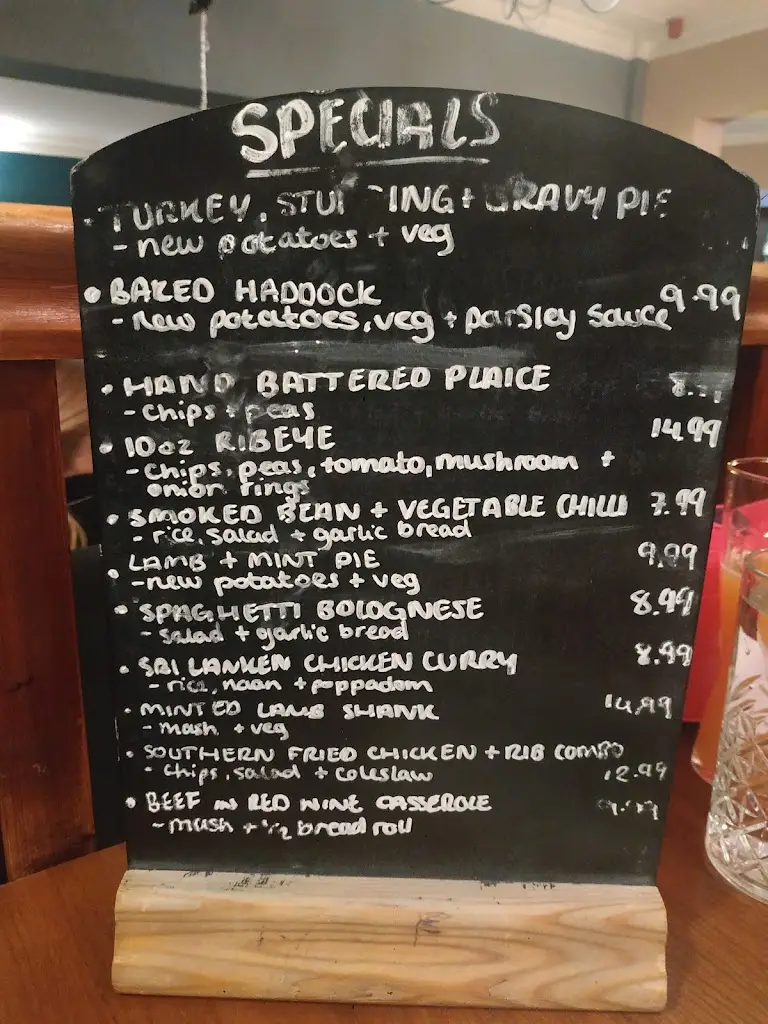 SPECIALS
- TURKEY, STUFFING + GRAVY PIE
- new potatoes + veg
• BAKED HADDOCK 9.99
- new potatoes, veg + parsley sauce
• HAND BATTERED PLAICE
- chips + peas
• 10oz RIBEYE 14.99
- chips, peas, tomato, mushroom +
onion rings
• SMOKED BEAN + VEGETABLE CHILLI 7.99
- rice, salad + garlic bread
• LAMB + MINT PIE 9.99
- new potatoes + veg
• SPAGHETTI BOLOGNESE 8.99
- salad + garlic bread
• SRI LANKEN CHICKEN CURRY 8.99
- rice, naan + poppadom
• MINTED LAMB SHANK 14.99
- mash + veg
• SOUTHERN FRIED CHICKEN + RIB COMBO
- chips, salad + coleslaw 12.99
• BEEF IN RED WINE CASSEROLE 9.99
- mash + 1/2 bread roll